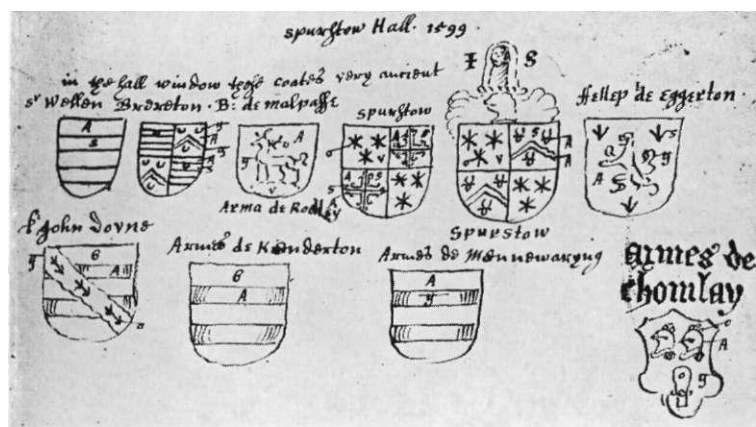 Spurstow Hall. 1599
in the hall window these coates very ancient
Sr Wellen Brereton. B: de malpasse
Spurstow
I S
ffellep de Eggerton
Arma de Rodley
Spurstow
Sr John Dovne
Armes de Kenderton
Armes de Mennewaryng
Armes de
Chomlay